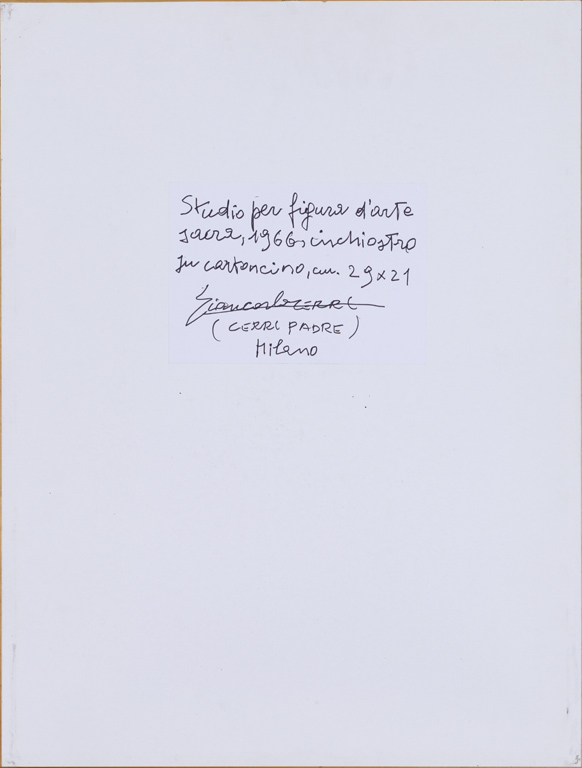 Studio per figura d'arte
sacra, 1966, inchiostro
su cartoncino, cm. 29x21
Giancarlo CERRI
(CERRI PADRE)
Milano